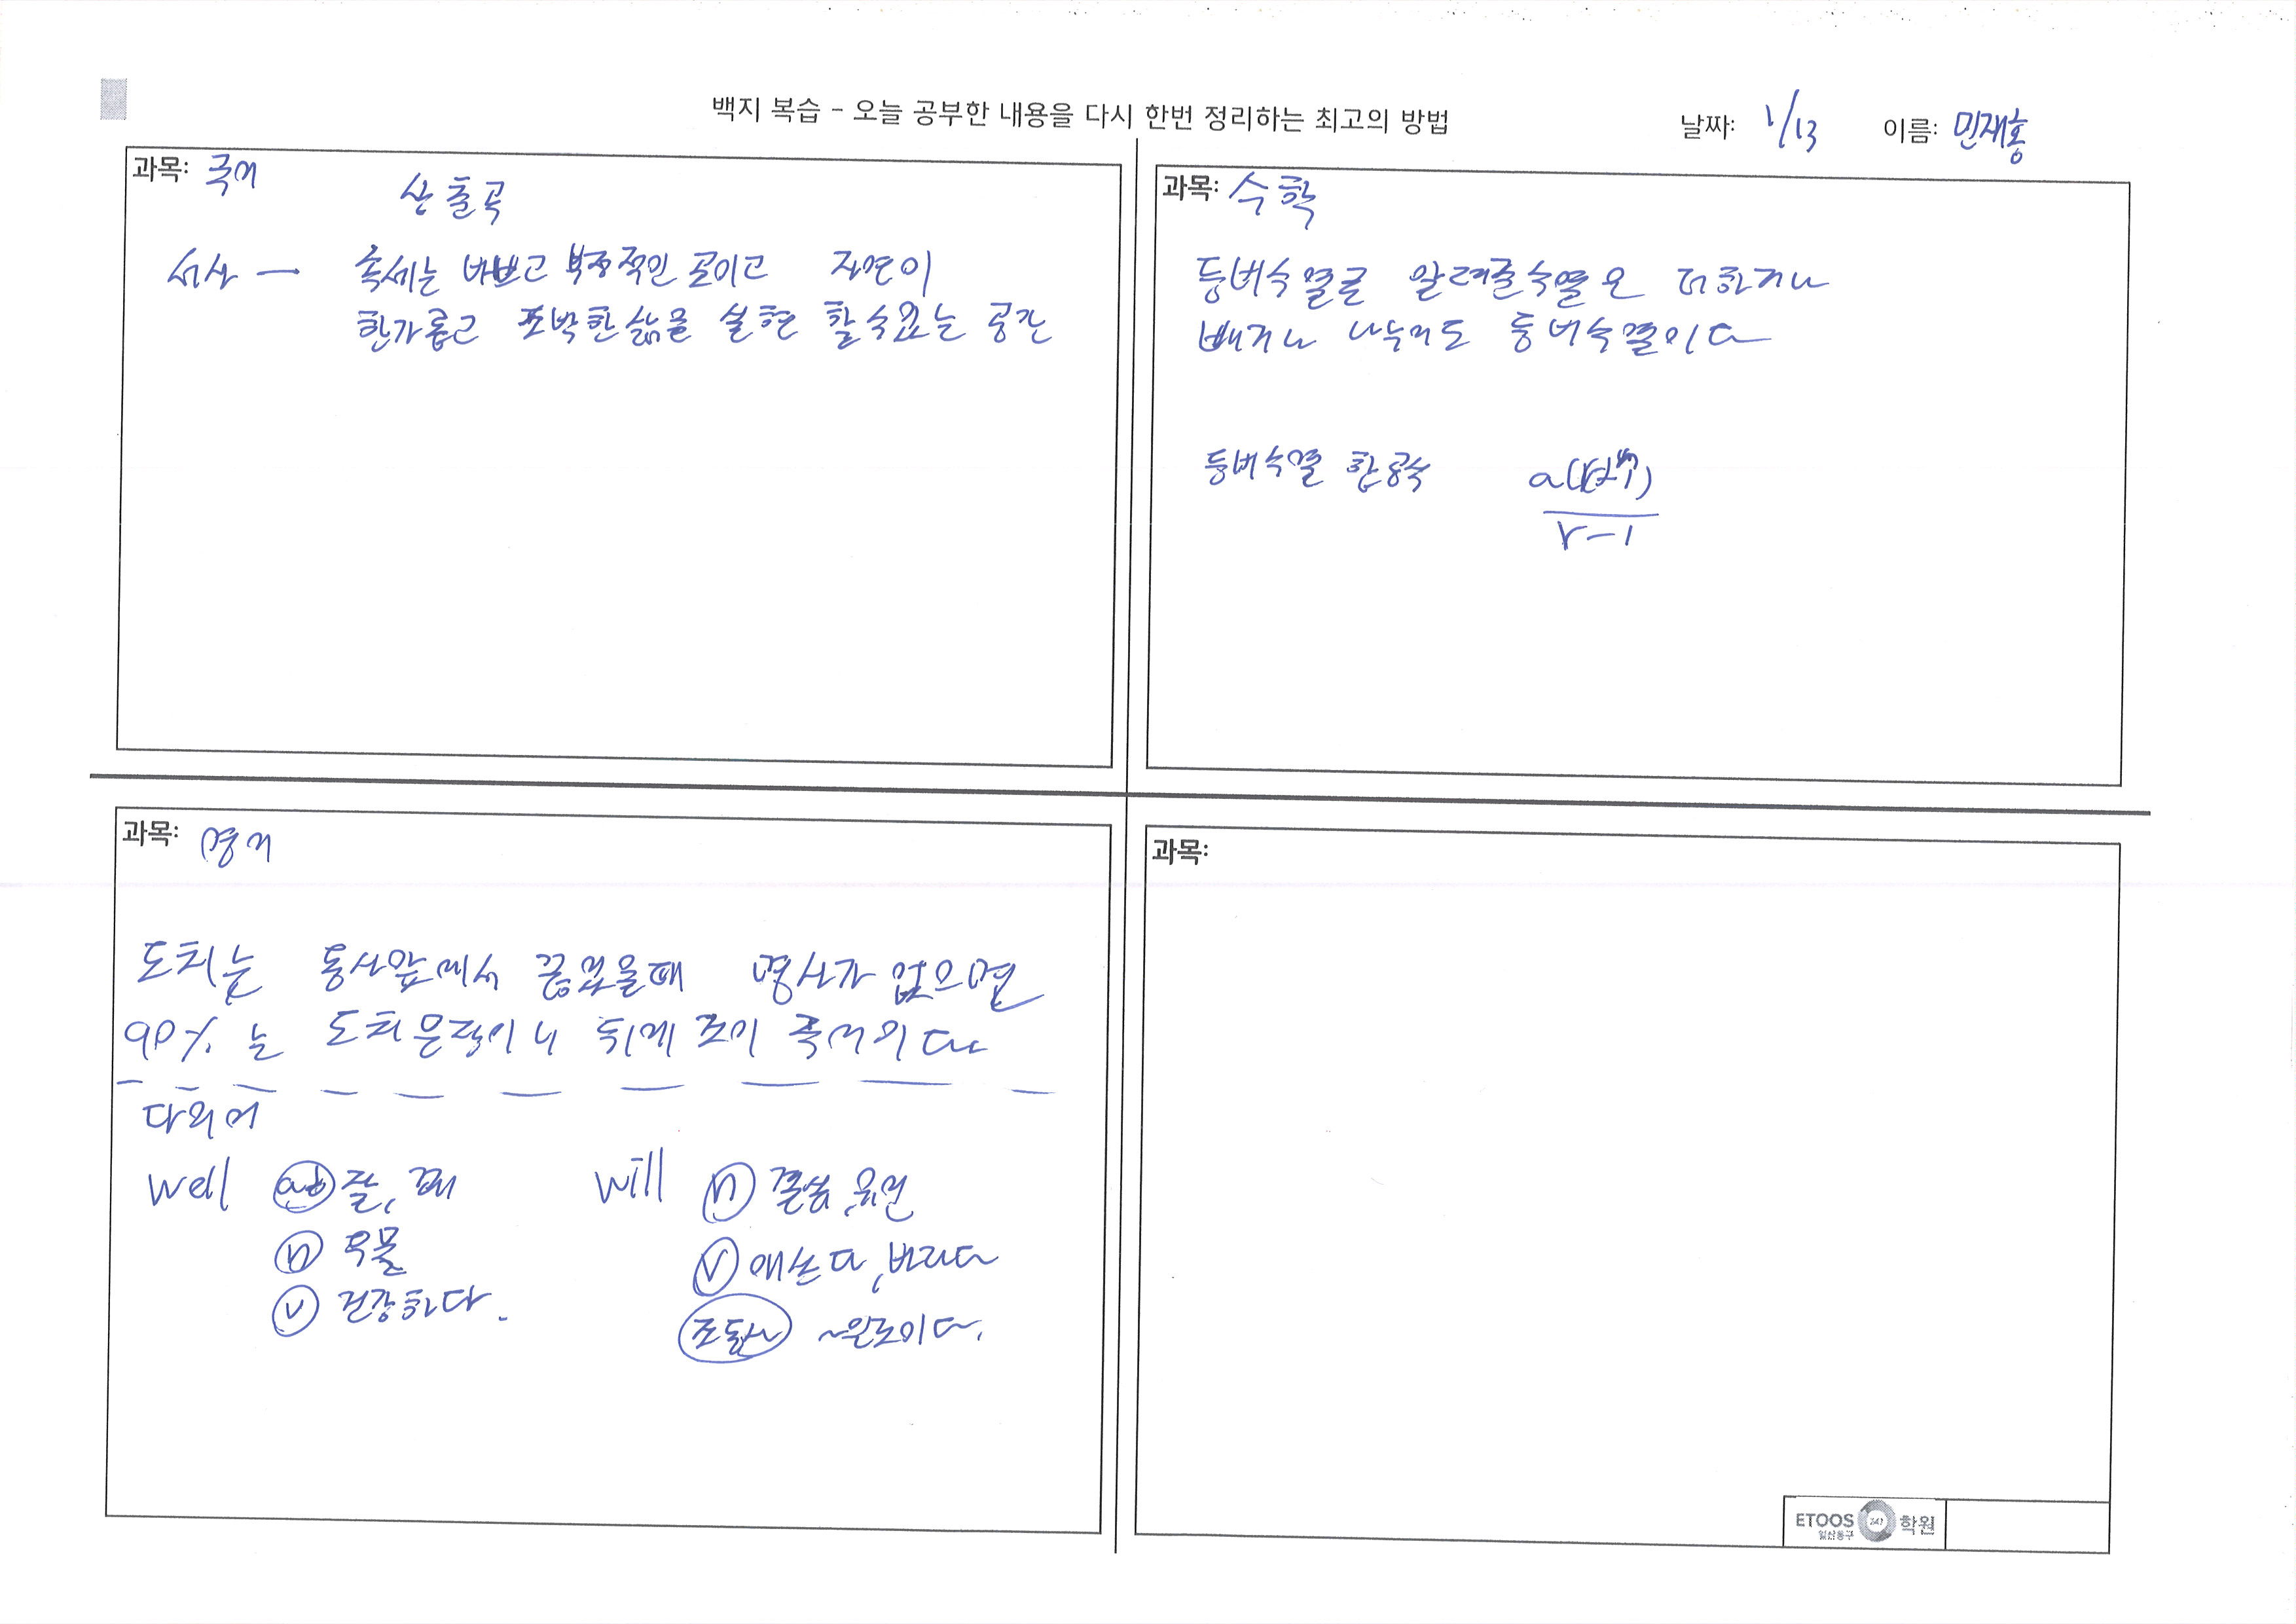 백지 복습 - 오늘 공부한 내용을 다시 한번 정리하는 최고의 방법
날짜: 1/13 이름: 민재홍
과목: 국어
산촌곡
서사 → 속세는 바쁘고 부정적인 곳이고 자연이
한가롭고 소박한 삶을 실현 할수있는 공간
과목: 수학
등비수열로 알려줄수열은 더하거나
빼거나 나누어도 등비수열이다
등비수열 합공식
r-1
과목: 영어
도치는 동사앞에서 끊었을때 명사가 없으면
90%는 도치문장이니 뒤에 조이 주어이다
다의어
well ad 잘, 꽤
n 우물
v 건강하다.
will n 결심, 유언
v 애쓴다, 바라다
조동사 ~일것이다.
과목:
ETOOS 247 학원
일산동구